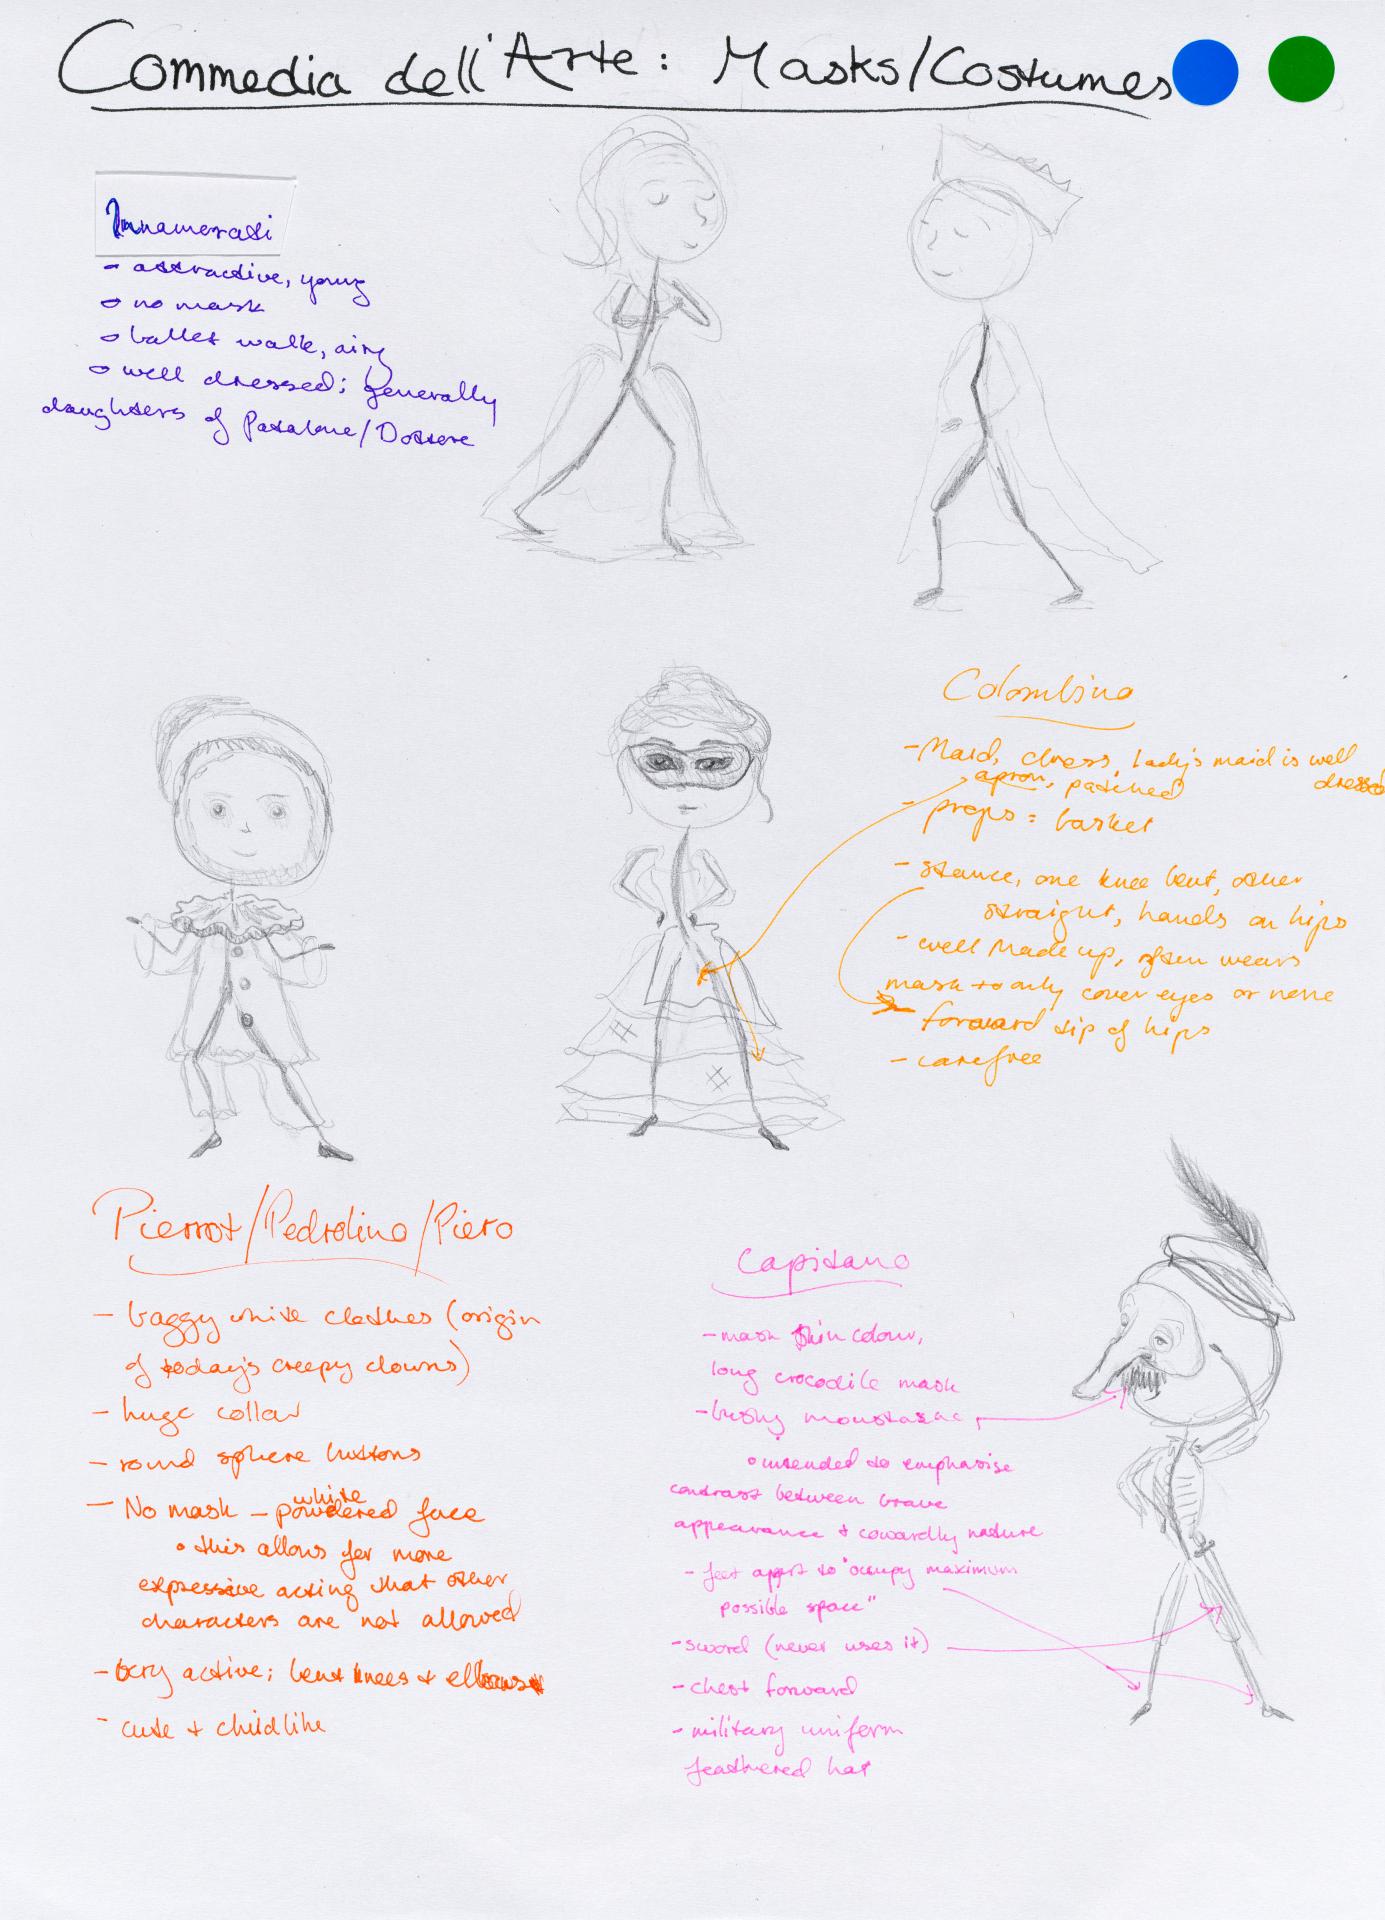 Commedia dell'Arte: Masks/Costumes
Innamorati
- attractive, young
- no mask
- ballet walk, airy
- well dressed; generally
daughters of Patalone/Dottore
Colombina
- Maid, dress, lady's maid is well
apron, patched dressed
- props: basket
- stance, one knee bent, other
straight, hands on hips
- well made up, often wears
mask to only cover eyes or none
- forward tip of hips
- carefree
Pierrot/Pedrolino/Piero
- baggy white clothes (origin
of today's creepy clowns)
- huge collar
- round sphere buttons
- No mask - white powdered face
• this allows for more
expressive acting that other
characters are not allowed
- very active; bent knees + elbows
- cute + childlike
Capitano
- mask skin colour,
long crocodile mask
- bushy moustache
• intended to emphasise
contrast between brave
appearance + cowardly nature
- feet apart to "occupy maximum
possible space"
- sword (never uses it)
- chest forward
- military uniform
feathered hat